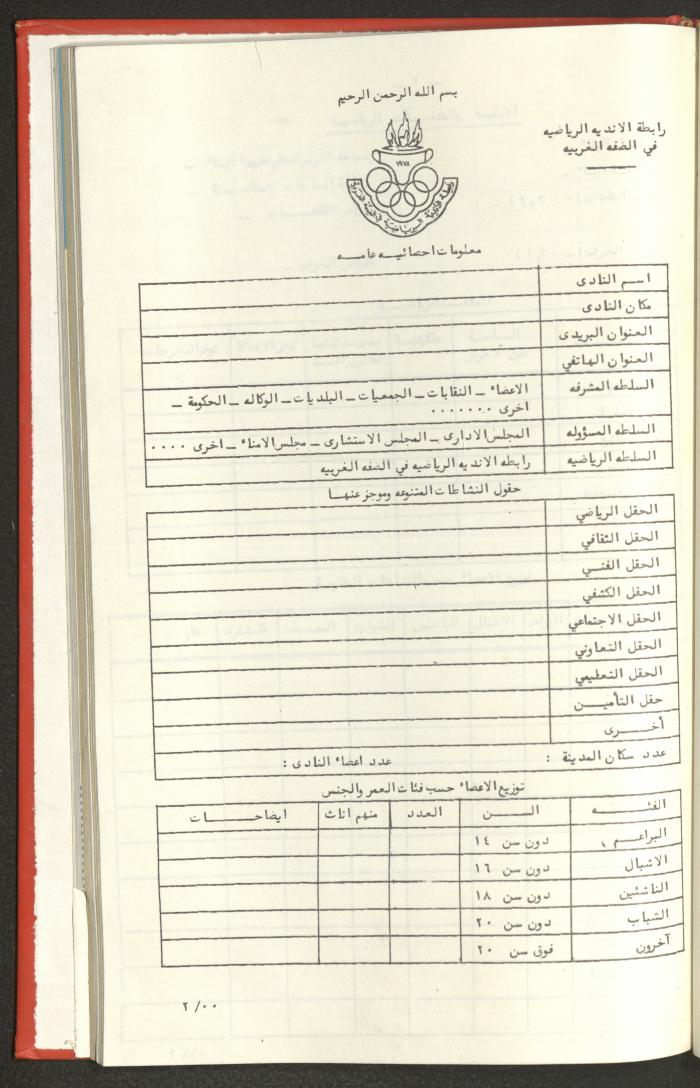 بسم الله الرحمن الرحيم
رابطة الانديه الرياضيه
في الضفه الغربيه
١٩٧٤
معلومات احصائيــه عامــه
اســم النادى
مكان النادى
العنوان البريدى
العنوان الهاتفي
السلطه المشرفه الاعضاء ـ النقابات ـ الجمعيات ـ البلديات ـ الوكاله ـ الحكومة ـ
اخرى ٠٠٠٠٠٠٠
السلطه المسؤوله المجلس الادارى ـ المجلس الاستشارى ـ مجلس الامناء ـ اخرى ٠٠٠٠
السلطه الرياضيه رابطه الانديه الرياضيه في الضفه الغربيه
حقول النشاطات المتنوعه وموجز عنهــا
الحقل الرياضي
الحقل الثقافي
الحقل الفنــي
الحقل الكشفي
الحقل الاجتماعي
الحقل التعاوني
الحقل التعليمي
حقل التأميــن
أخــــرى
عدد سكان المدينة : عدد اعضاء النادى :
توزيع الاعضاء حسب فئات العمر والجنس
الفئــــه الســـن العدد منهم اناث ايضاحـــــات
البراعــم دون سن ١٤
الاشبال دون سن ١٦
الناشئين دون سن ١٨
الشباب دون سن ٢٠
آخرون فوق سن ٢٠
٢/٠٠